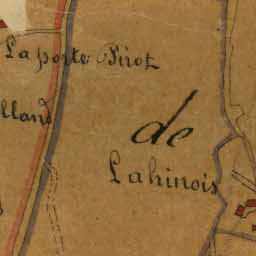 La porte Pirot
lland
de
Lahinois